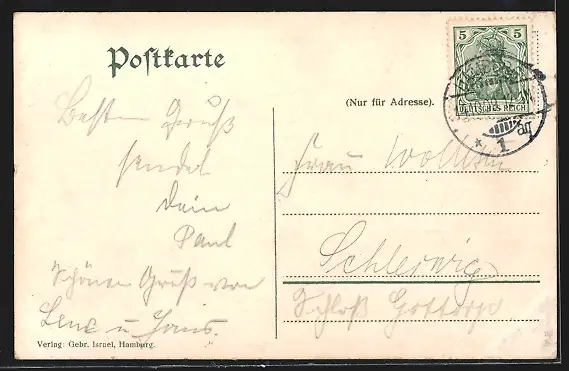 Postkarte
5 5
DEUTSCHES REICH
(Nur für Adresse).
Besten Gruß
sendet
Dein
Paul
Schönen Gruß von
Lene u. Hans.
Frau
Schleswig
Schloß Gottorp
Verlag: Gebr. Israel, Hamburg.